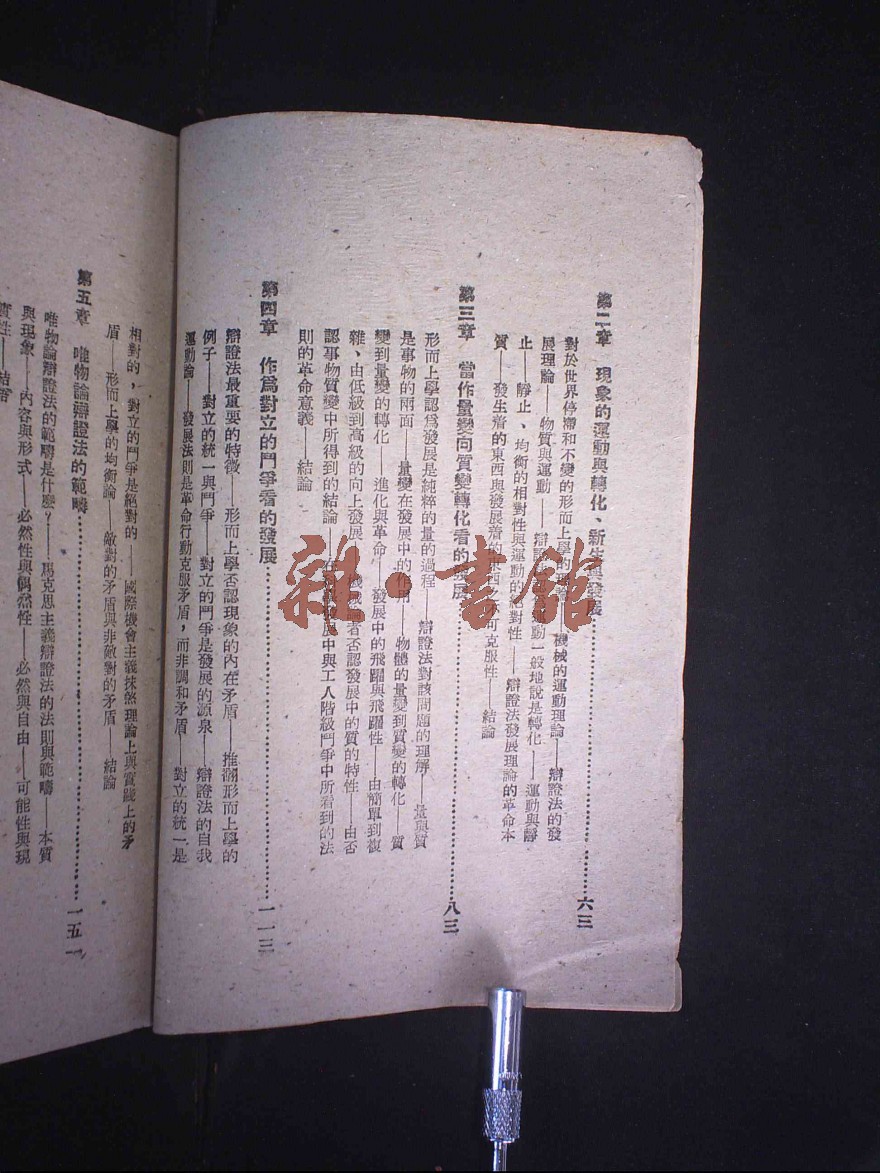 第二章　現象的運動與轉化、新生與發展……六三
對於世界停滯和不變的形而上學的理論——機械的運動理論——辯證法的發
展理論——物質與運動——辯證法 運動一般地說是轉化——運動與靜
止——靜止、均衡的相對性與運動的絕對性——辯證法發展理論的革命本
質——發生着的東西與發展着的東西 不可克服性——結論
第三章　當作量變向質變轉化看的發展……八三
形而上學認爲發展是純粹的量的過程——辯證法對該問題的理解——量與質
是事物的兩面——量變在發展中的作用——物體的量變到質變的轉化——質
變到量變的轉化——進化與革命——發展中的飛躍與飛躍性——由簡單到複
雜、由低級到高級的向上發展——機械 者否認發展中的質的特性——由否
認事物質變中所得到的結論——在 發展中與工人階級鬥爭中所看到的法
則的革命意義——結論
第四章　作爲對立的鬥爭看的發展……一一三
辯證法最重要的特徵——形而上學否認現象的內在矛盾——推翻形而上學的
例子——對立的統一與鬥爭——對立的鬥爭是發展的源泉——辯證法的自我
運動論——發展法則是革命行動克服矛盾，而非調和矛盾——對立的統一是
相對的，對立的鬥爭是絕對的——國際機會主義抹煞理論上與實踐上的矛
盾——形而上學的均衡論——敵對的矛盾與非敵對的矛盾——結論
第五章　唯物論辯證法的範疇……一五一
唯物論辯證法的範疇是什麼？——馬克思主義辯證法的法則與範疇——本質
與現象——內容與形式——必然性與偶然性——必然與自由——可能性與現
實性——結語
雜·書館